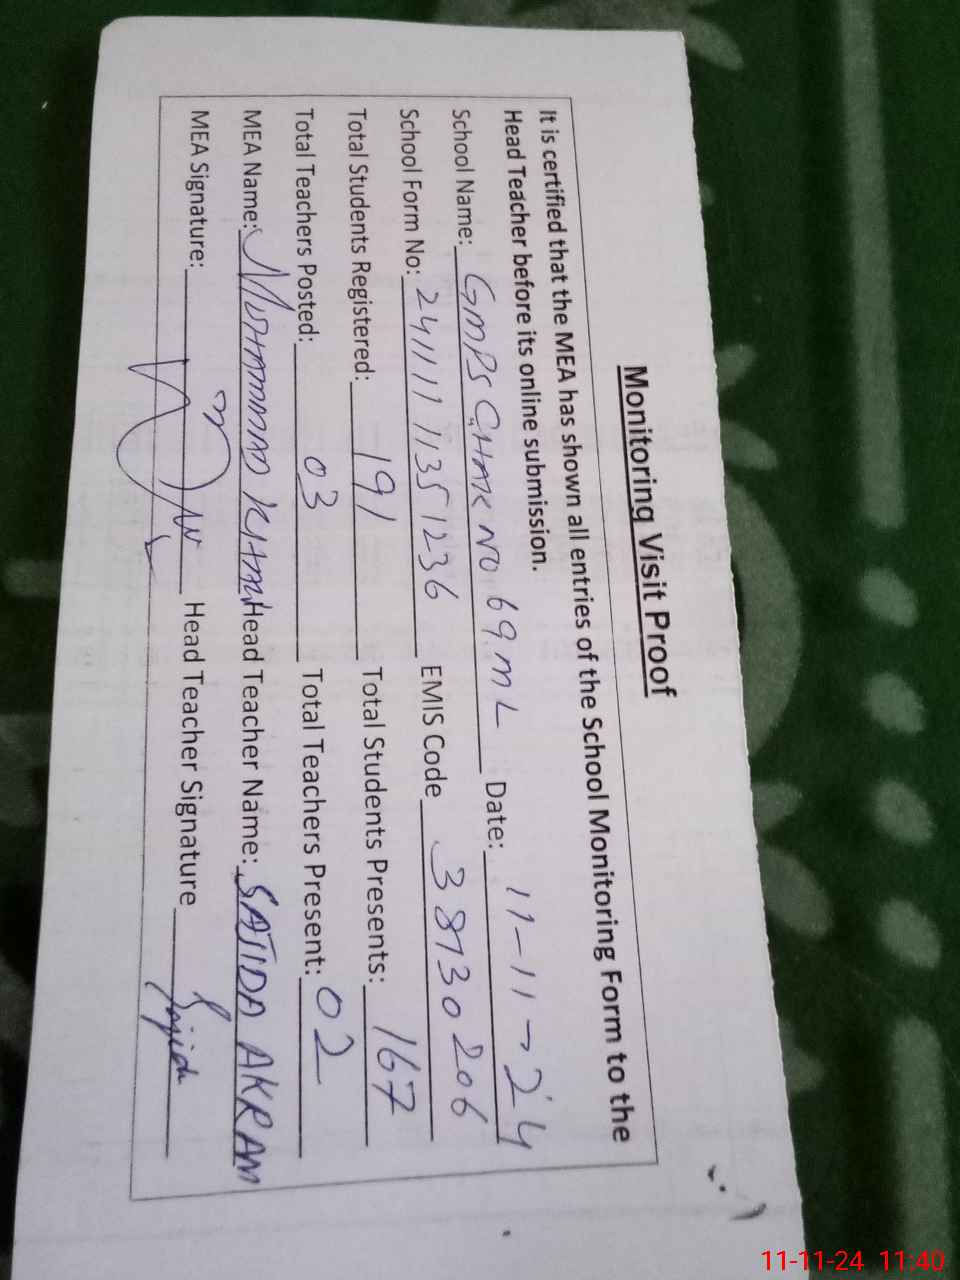 Monitoring Visit Proof
It is certified that the MEA has shown all entries of the School Monitoring Form to the
Head Teacher before its online submission.
School Name: GMPS CHAK NO. 69 ML Date: 11-11-24
School Form No: 2411111351236 EMIS Code 38130206
Total Students Registered: 191 Total Students Presents: 167
Total Teachers Posted: 03 Total Teachers Present: 02
MEA Name: MUHAMMAD Head Teacher Name: SAJIDA AKRAM
MEA Signature: Head Teacher Signature Sajida
11-11-24 11:40